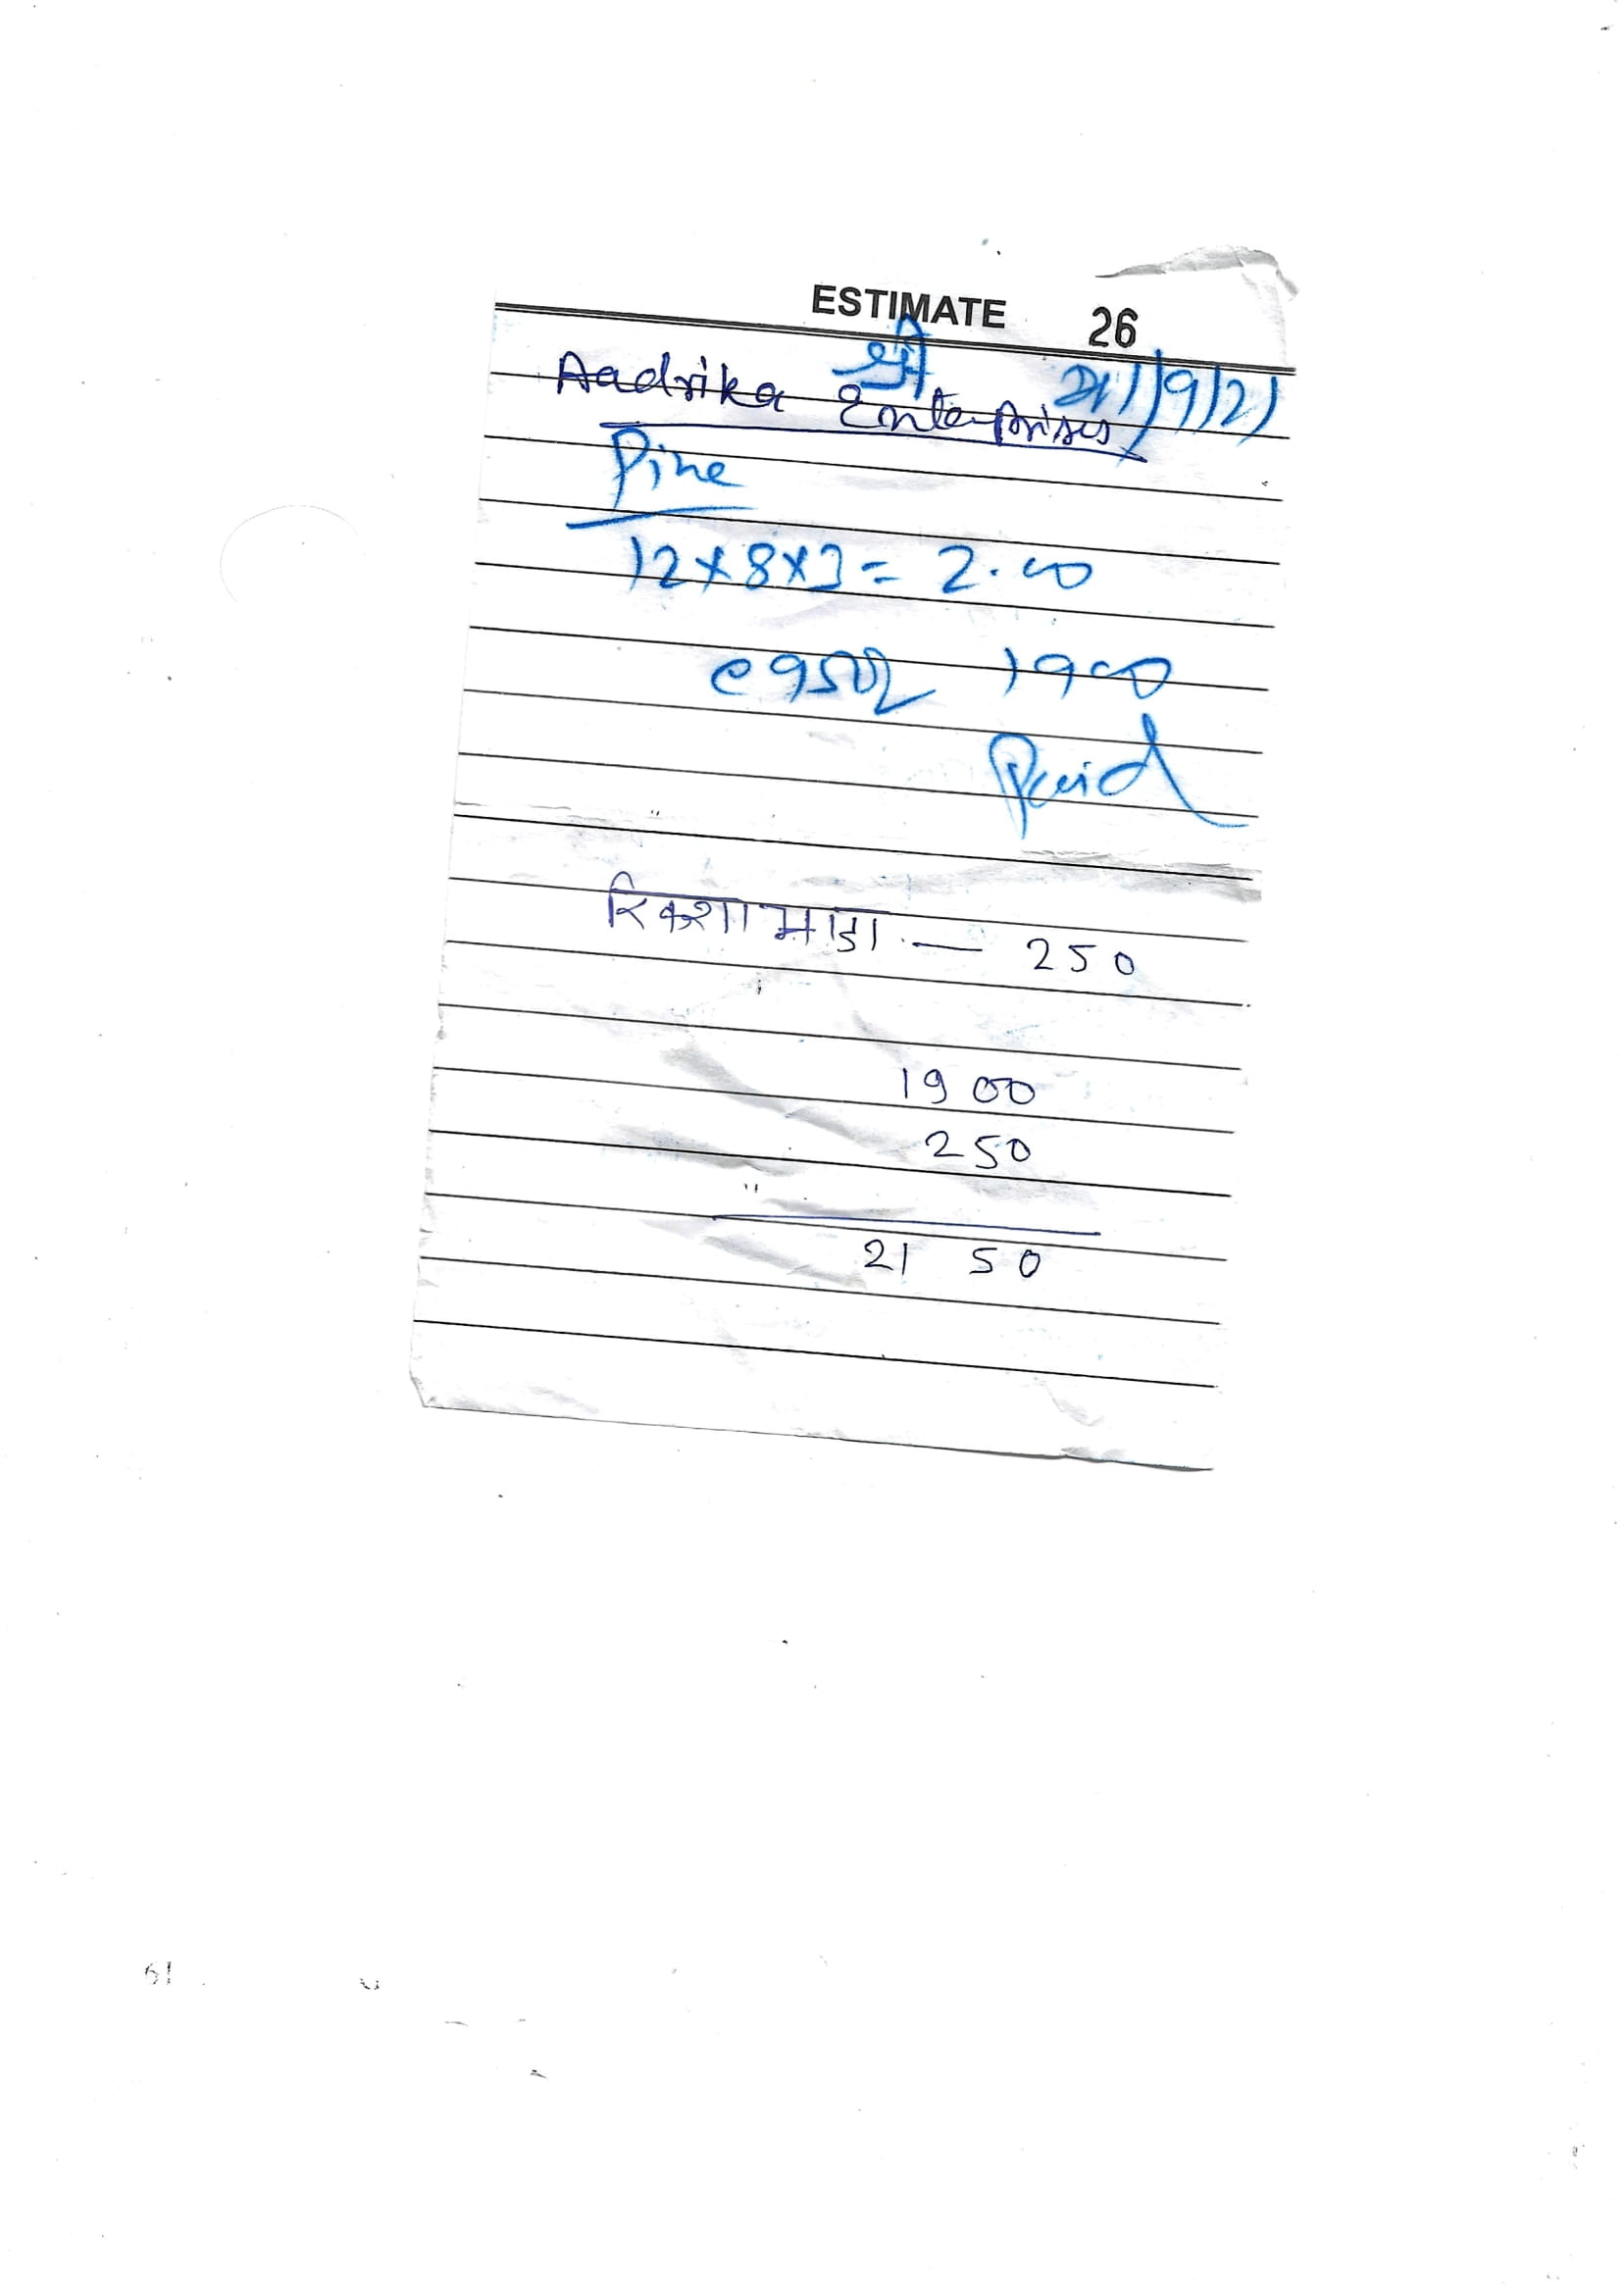 ESTIMATE 26
श्री
1/9/21
Aadrika Enterprises
Pine
12×8×3 = 2.00
@950/ 1900
Paid
रिक्शा भाडा — 250
1900
250
2150